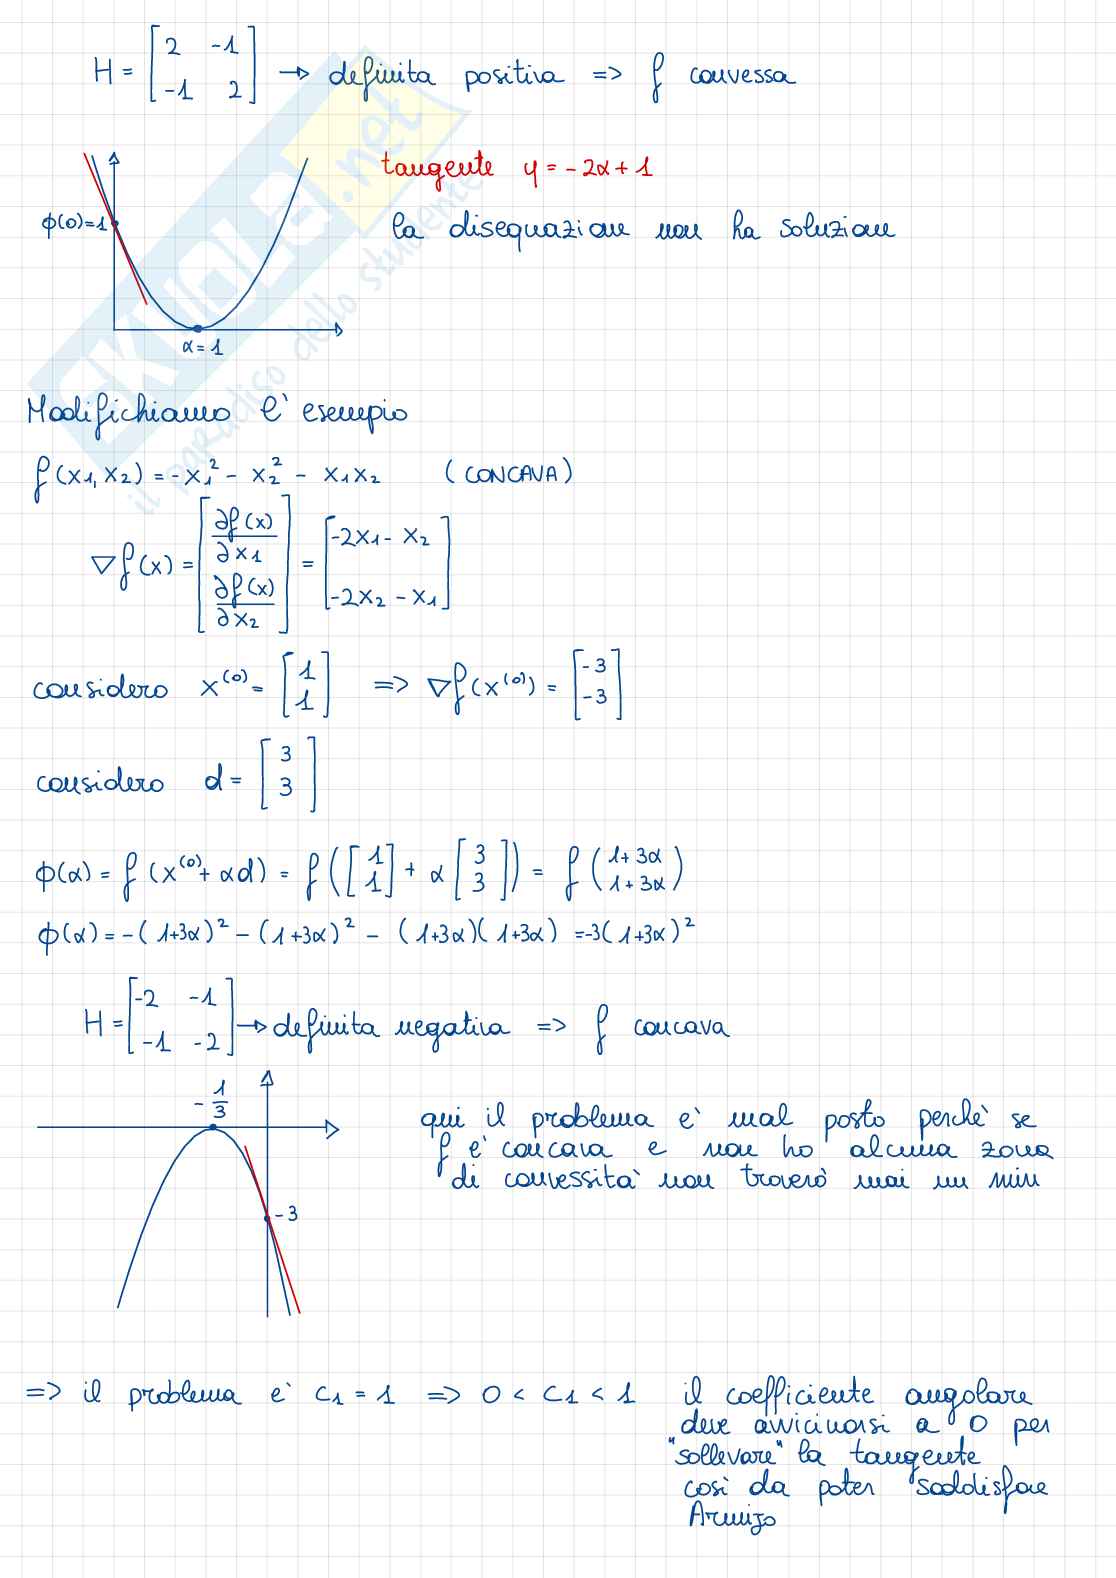 H = [2 -1; -1 2] → definita positiva => f convessa
tangente y = -2α + 1
ϕ(0)=1
la disequazione non ha soluzione
α = 1
SKUOLA.net
il paradiso dello studente
Modifichiamo l'esempio
f(x₁, x₂) = -x₁² - x₂² - x₁x₂ (CONCAVA)
∇f(x) = [∂f(x)/∂x₁; ∂f(x)/∂x₂] = [-2x₁ - x₂; -2x₂ - x₁]
considero x⁽⁰⁾ = [1; 1] => ∇f(x⁽⁰⁾) = [-3; -3]
considero d = [3; 3]
ϕ(α) = f(x⁽⁰⁾ + αd) = f([1; 1] + α[3; 3]) = f(1+3α; 1+3α)
ϕ(α) = -(1+3α)² - (1+3α)² - (1+3α)(1+3α) = -3(1+3α)²
H = [-2 -1; -1 -2] → definita negativa => f concava
-1/3
qui il problema è mal posto perchè se
f è concava e non ho alcuna zona
di convessità non troverò mai un min
-3
=> il problema è c₁ = 1 => 0 < c₁ < 1 il coefficiente angolare
deve avvicinarsi a 0 per
"sollevare" la tangente
così da poter soddisfare
Armijo